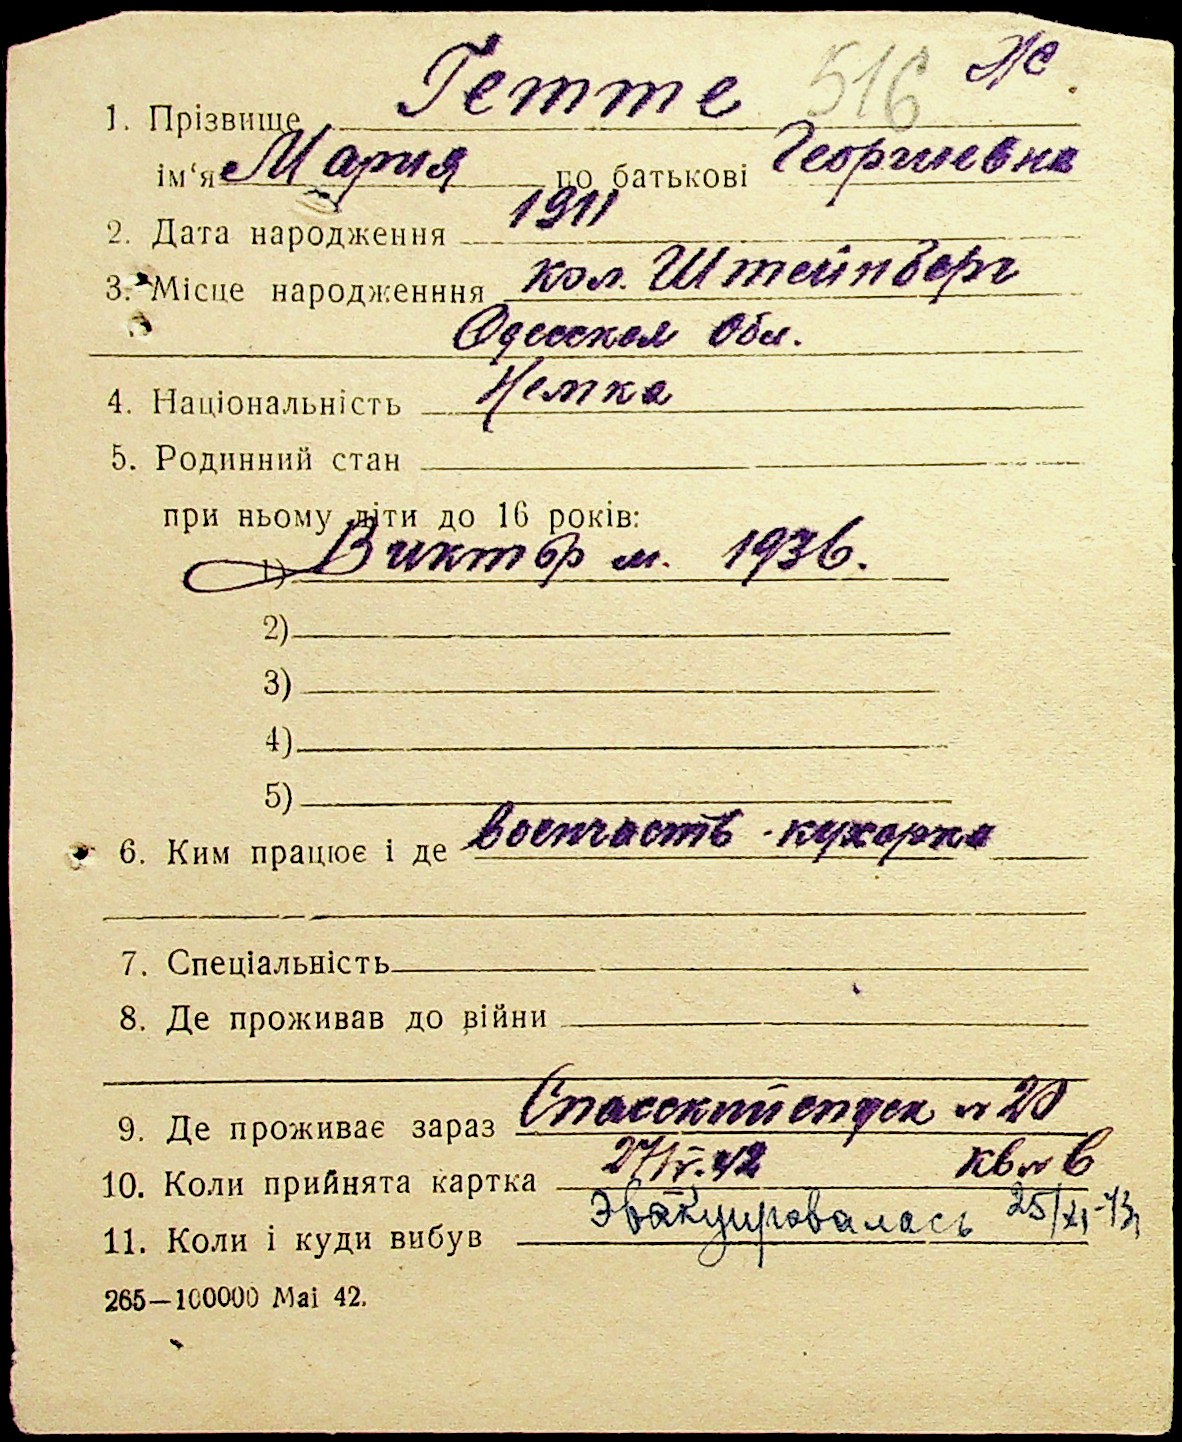 516 Же.
1. Прізвище Гетте
ім'я Мария по батькові Георгиевна
2. Дата народження 1911
3. Місце народженння кол. Штейнберг
Одесской Обл.
4. Національність Немка
5. Родинний стан
при ньому діти до 16 років:
1) Виктор м. 1936.
2)
3)
4)
5)
6. Ким працює і де военчасть - кухарка
7. Спеціальність
8. Де проживав до війни
9. Де проживає зараз Спасский спуск № 20
10. Коли прийнята картка 42 кв № 6
11. Коли і куди вибув Эвакуировалась 25/XI-43
265—100000 Маі 42.